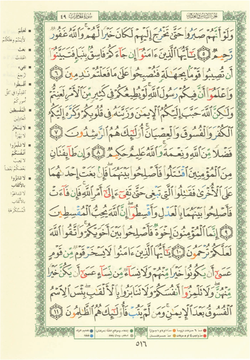 سورة الحجرات ٤٩
وَلَوْ أَنَّهُمْ صَبَرُوا۟ حَتَّىٰ تَخْرُجَ إِلَيْهِمْ لَكَانَ خَيْرًا لَّهُمْ وَٱللَّهُ غَفُورٌ
رَّحِيمٌ ٥ يَٰٓأَيُّهَا ٱلَّذِينَ ءَامَنُوٓا۟ إِن جَآءَكُمْ فَاسِقٌۢ بِنَبَإٍ فَتَبَيَّنُوٓا۟
أَن تُصِيبُوا۟ قَوْمًۢا بِجَهَٰلَةٍ فَتُصْبِحُوا۟ عَلَىٰ مَا فَعَلْتُمْ نَٰدِمِينَ ٦
وَٱعْلَمُوٓا۟ أَنَّ فِيكُمْ رَسُولَ ٱللَّهِ لَوْ يُطِيعُكُمْ فِى كَثِيرٍ مِّنَ ٱلْأَمْرِ لَعَنِتُّمْ
وَلَٰكِنَّ ٱللَّهَ حَبَّبَ إِلَيْكُمُ ٱلْإِيمَٰنَ وَزَيَّنَهُۥ فِى قُلُوبِكُمْ وَكَرَّهَ إِلَيْكُمُ
ٱلْكُفْرَ وَٱلْفُسُوقَ وَٱلْعِصْيَانَ أُو۟لَٰٓئِكَ هُمُ ٱلرَّٰشِدُونَ ٧
فَضْلًا مِّنَ ٱللَّهِ وَنِعْمَةً وَٱللَّهُ عَلِيمٌ حَكِيمٌ ٨ وَإِن طَآئِفَتَانِ
مِنَ ٱلْمُؤْمِنِينَ ٱقْتَتَلُوا۟ فَأَصْلِحُوا۟ بَيْنَهُمَا فَإِنۢ بَغَتْ إِحْدَىٰهُمَا
عَلَى ٱلْأُخْرَىٰ فَقَٰتِلُوا۟ ٱلَّتِى تَبْغِى حَتَّىٰ تَفِىٓءَ إِلَىٰٓ أَمْرِ ٱللَّهِ فَإِن فَآءَتْ
فَأَصْلِحُوا۟ بَيْنَهُمَا بِٱلْعَدْلِ وَأَقْسِطُوٓا۟ إِنَّ ٱللَّهَ يُحِبُّ ٱلْمُقْسِطِينَ
٩ إِنَّمَا ٱلْمُؤْمِنُونَ إِخْوَةٌ فَأَصْلِحُوا۟ بَيْنَ أَخَوَيْكُمْ وَٱتَّقُوا۟ ٱللَّهَ
لَعَلَّكُمْ تُرْحَمُونَ ١٠ يَٰٓأَيُّهَا ٱلَّذِينَ ءَامَنُوا۟ لَا يَسْخَرْ قَوْمٌ مِّن قَوْمٍ
عَسَىٰٓ أَن يَكُونُوا۟ خَيْرًا مِّنْهُمْ وَلَا نِسَآءٌ مِّن نِّسَآءٍ عَسَىٰٓ أَن يَكُنَّ خَيْرًا
مِّنْهُنَّ وَلَا تَلْمِزُوٓا۟ أَنفُسَكُمْ وَلَا تَنَابَزُوا۟ بِٱلْأَلْقَٰبِ بِئْسَ ٱلِٱسْمُ
ٱلْفُسُوقُ بَعْدَ ٱلْإِيمَٰنِ وَمَن لَّمْ يَتُبْ فَأُو۟لَٰٓئِكَ هُمُ ٱلظَّٰلِمُونَ ١١
٥١٦